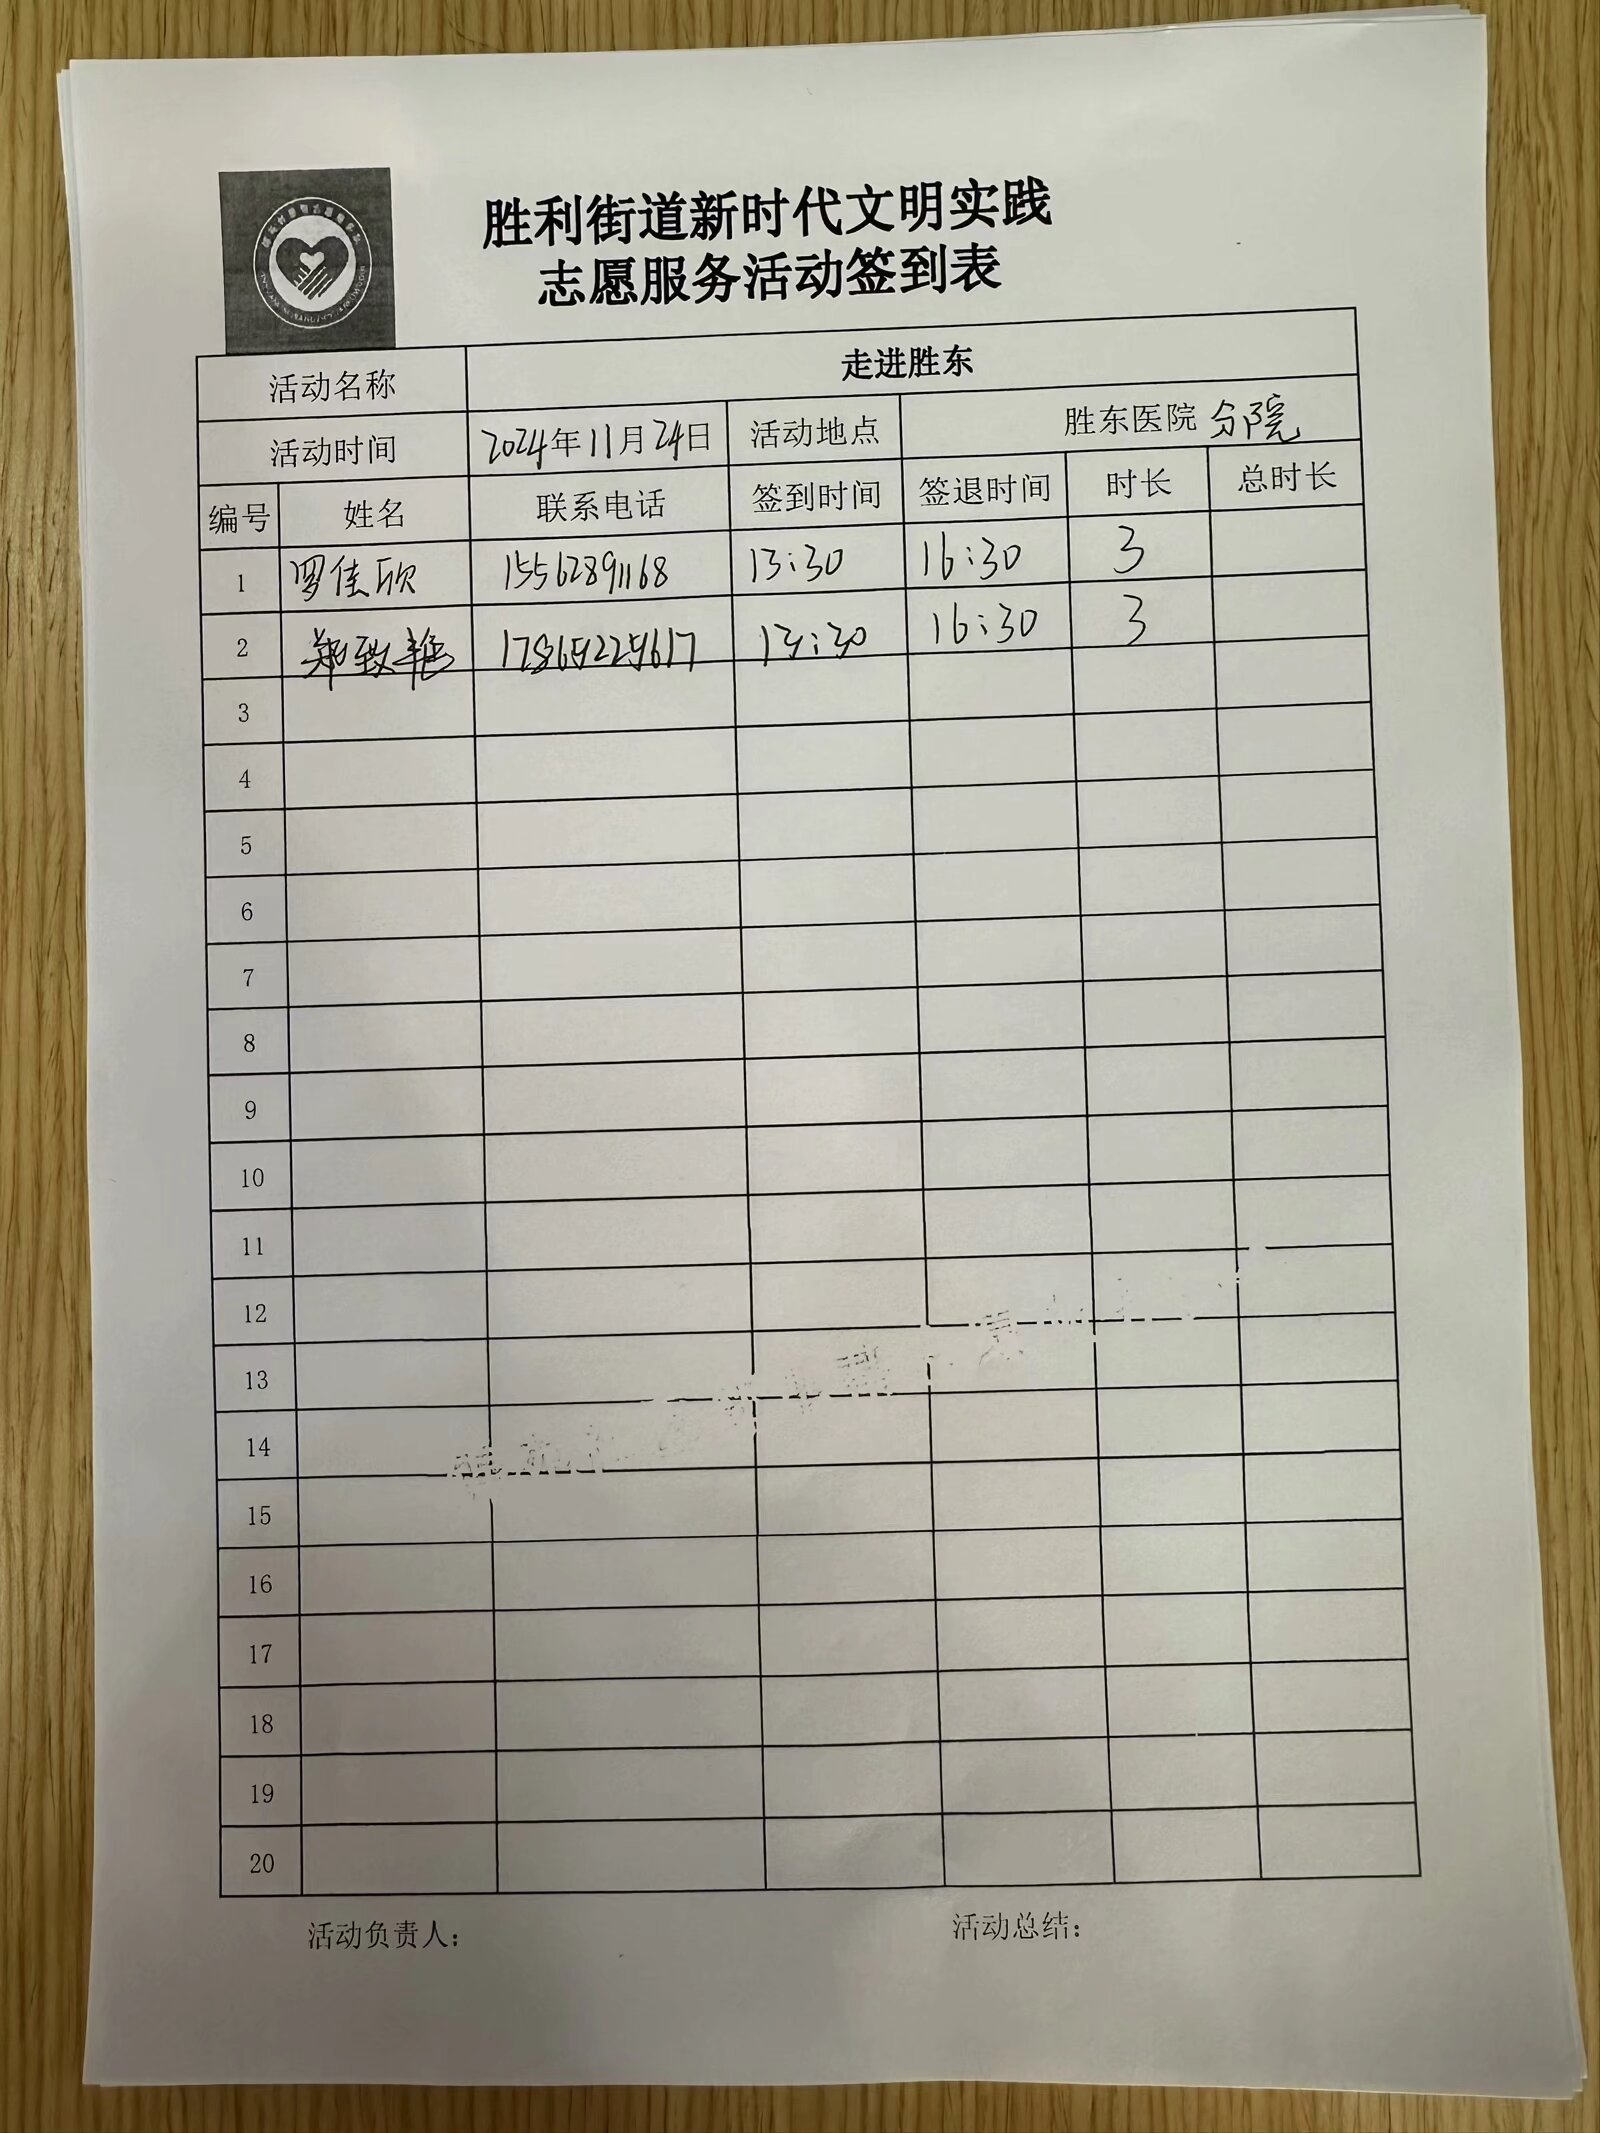 胜利街道新时代文明实践
志愿服务活动签到表
活动名称 走进胜东
活动时间 2024年11月24日 活动地点 胜东医院 分院
编号 姓名 联系电话 签到时间 签退时间 时长 总时长
1 罗佳欣 15562891168 13:30 16:30 3
2 郑致 17865225617 13:30 16:30 3
3
4
5
6
7
8
9
10
11
12
13
14
15
16
17
18
19
20
活动负责人： 活动总结：